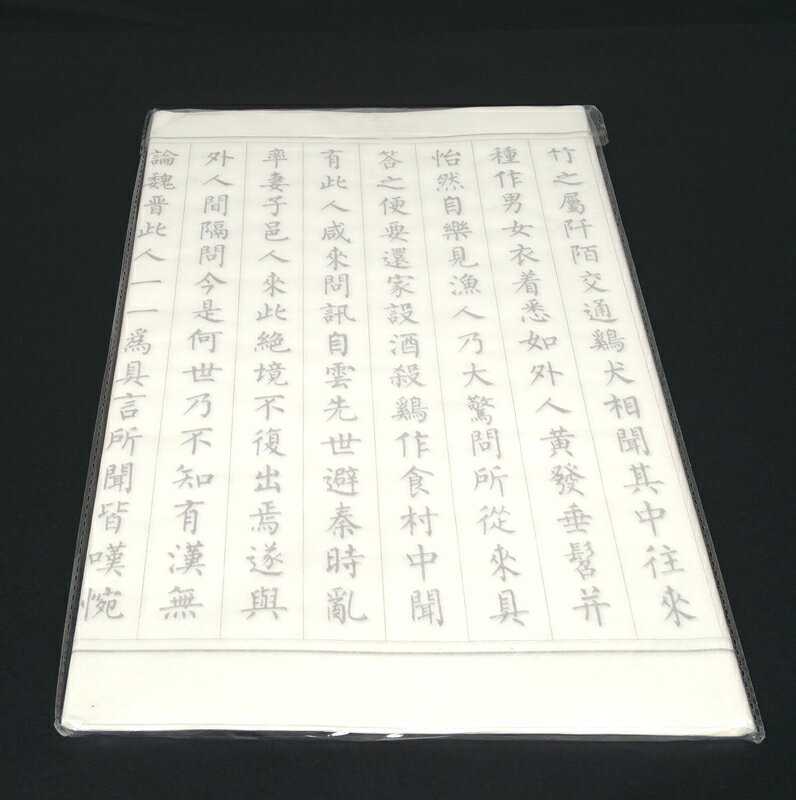 竹之屬阡陌交通鷄犬相聞其中往來
種作男女衣着悉如外人黃發垂髫并
怡然自樂見漁人乃大驚問所從來具
答之便要還家設酒殺鷄作食村中聞
有此人咸來問訊自雲先世避秦時亂
率妻子邑人來此絶境不復出焉遂與
外人間隔問今是何世乃不知有漢無
論魏晋此人一一爲具言所聞皆嘆惋